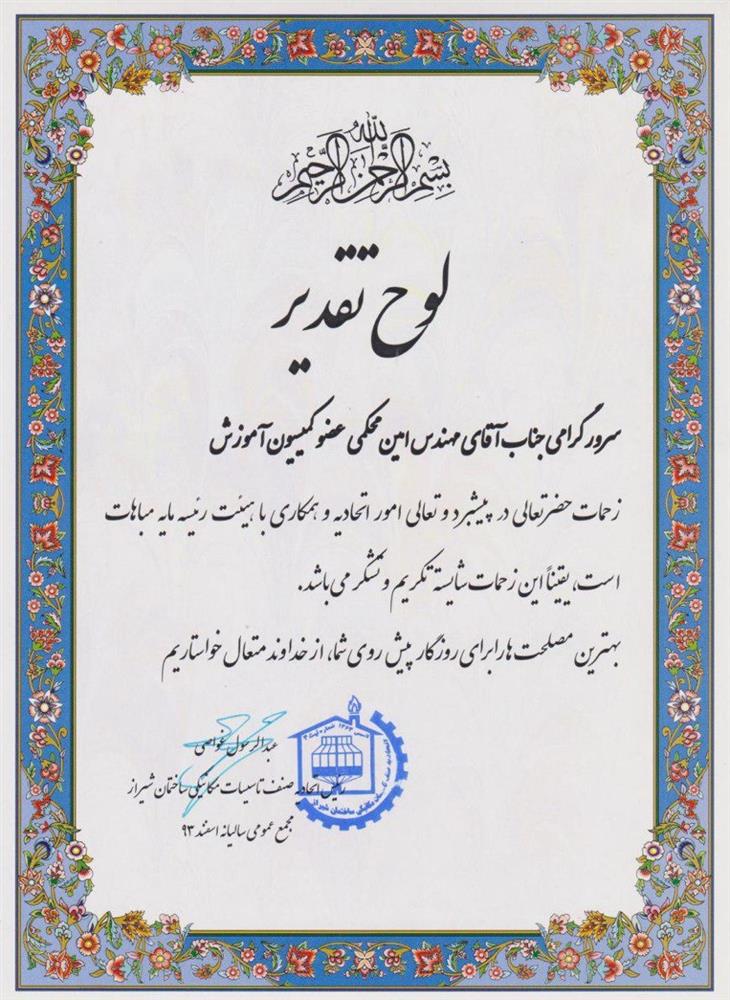 بسم الله الرحمن الرحیم
لوح تقدیر
سرور گرامی جناب آقای مهندس امین محکمی عضو کمیسیون آموزش
زحمات حضرتعالی در پیشبرد و تعالی امور اتحادیه و همکاری با هیئت رئیسه مایه مباهات
است، یقیناً این زحمات شایسته تکریم و تشکر می باشد.
بهترین مصلحت ها را برای روزگار پیش روی شما، از خداوند متعال خواستاریم
عبدالرسول غواصی
رئیس اتحادیه صنف تاسیسات مکانیکی ساختمان شیراز
مجمع عمومی سالیانه اسفند ۹۳
مکانیکی ساختمان شیراز